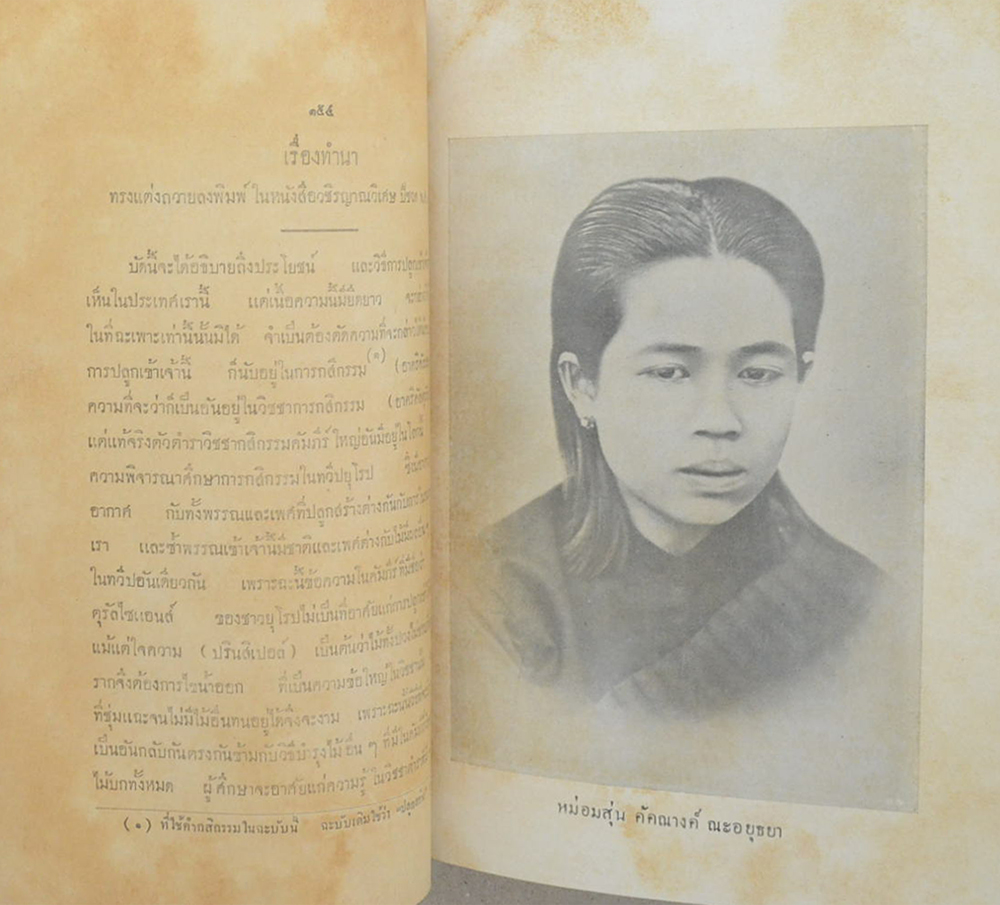 ๑๕๔
เรื่องทำนา
ทรงแต่งถวายลงพิมพ์ ในหนังสือวชิรญาณวิเศษ
บัดนี้จะได้อธิบายถึงประโยชน์ และวิธีการปลูก
เห็นในประเทศเรานี้ แต่เนื้อความนี้มียืดยาว
ในที่ฉะเพาะเท่านี้นั้นมิได้ จำเป็นต้องตัดความที่จะกล่าว
การปลูกเข้าเจ้านี้ ก็นับอยู่ในการกสิกรรม (๑)
ความที่จะว่าก็เป็นอันอยู่ในวิชชาการกสิกรรม
แต่แท้จริงตัวตำราวิชชากสิกรรมคัมภีร์ ใหญ่อันมีอยู่ในโลกนี้
ความพิจารณาศึกษาการกสิกรรมในทวีปยุโรป
อากาศ กับทั้งพรรณและเพศที่ปลูกสร้างต่างกันกับ
เรา และซ้ำพรรณเข้าเจ้านี้มีชาติและเพศต่างกับไม้
ในทวีปอันเดียวกัน เพราะฉะนี้ข้อความในคัมภีร์ ที่มีชื่อว่า
คุรัลไซแอนส์ ของชาวยุโรปไม่เป็นที่อาศัยแก่การปลูก
แม้แต่ใจความ (ปรินสิเปอล์) เป็นต้นว่าไม้ทั้งปวง
รากจึงต้องการไขน้ำออก ที่เป็นความข้อใหญ่ในวิชชานั้น
ที่ชุ่มแฉะจนไม่มีไม้อื่นทนอยู่ได้จึงจะงาม เพราะฉะนั้น
เป็นอันกลับกันตรงกันข้ามกับวิธีบำรุงไม้อื่น ๆ ที่มีในคัมภีร์
ไม้บกทั้งหมด ผู้ศึกษาจะอาศัยแก่ความรู้ ในวิชชาตำรา
(๑) ที่ใช้คำกสิกรรมในฉะบับนี้ ฉะบับเดิมใช้ว่า
หม่อมสุ่น คัคณางค์ ณะอยุธยา